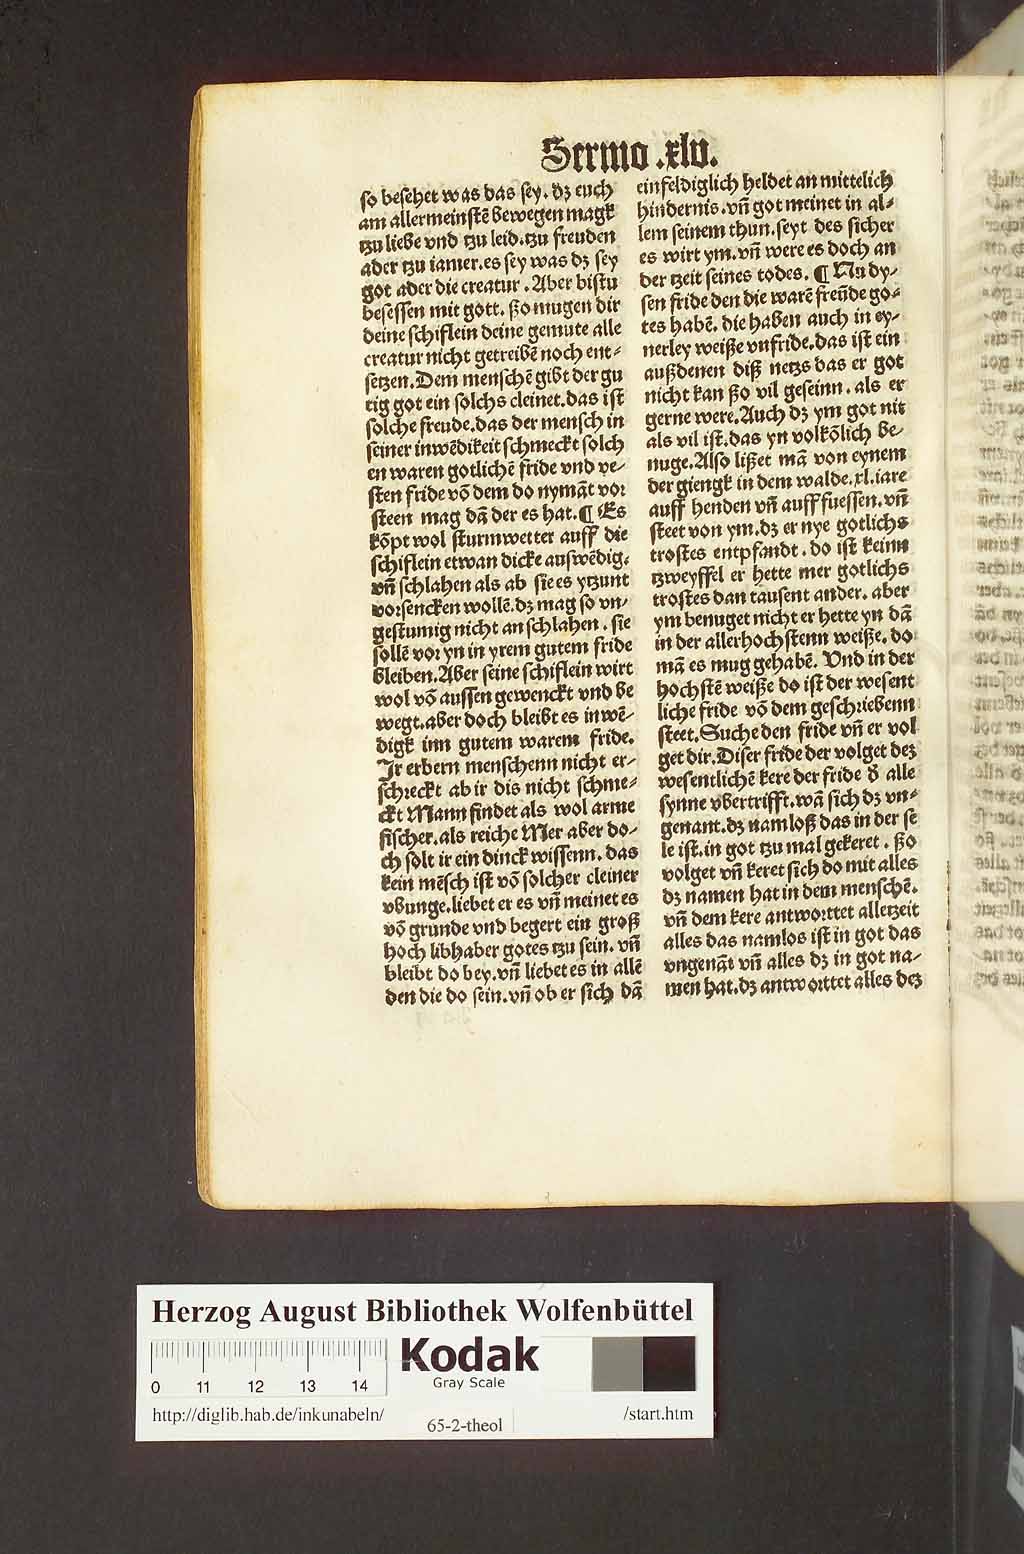 Sermo .xlv.
so besehet was das sey. dz euch
am allermeinstē bewegen magk
tzu liebe vnd tzu leid. tzu freuden
ader tzu iamer. es sey was dz sey
got ader die creatur . Aber bistu
besessen mit gott. ßo mugen dir
deine schiflein deine gemute alle
creatur nicht getreibē noch ent⸗
setzen. Dem menschē gibt der gu
tig got ein solchs cleinet. das ist
solche freude. das der mensch in
seiner inwēdikeit schmeckt solch
en waren gotlichē fride vnd ve⸗
sten fride vō dem do nymāt vor
steen mag dā der es hat. ¶ Es
kōpt wol sturmwetter auff die
schiflein etwan dicke auswēdig.
vn̄ schlahen als ab sie es ytzunt
vorsencken wollē. dz mag so vn⸗
gestumig nicht an schlahen . sie
sollē vor yn in yrem gutem fride
bleiben. Aber seine schiflein wirt
wol vō aussen gewenckt vnd be
wegt. aber doch bleibt es inwē⸗
digk inn gutem warem fride.
Ir erbern menschenn nicht er⸗
schreckt ab ir dis nicht schme⸗
ckt Mann findet als wol arme
fischer. als reiche Mer aber do⸗
ch solt ir ein dinck wissenn. das
kein mēsch ist vō solcher cleiner
vbunge. liebet er es vn̄ meinet es
vō grunde vnd begert ein groß
hoch libhaber gotes tzu sein. vn̄
bleibt do bey. vn̄ liebet es in allē
den die do sein. vn̄ ob er sich dā
einfeldiglich heldet an mittelich
hindernis. vn̄ got meinet in al⸗
lem seinem thun. seyt des sicher
es wirt ym. vn̄ were es doch an
der tzeit seines todes. ¶ Nu dy⸗
sen fride den die warē freūde go⸗
tes habē. die haben auch in ey⸗
nerley weiße vnfride. das ist ein
außdenen diß netzs das er got
nicht kan ßo vil geseinn . als er
gerne were. Auch dz ym got nit
als vil ist. das yn volkōlich be⸗
nuge. Also lißet mā von eynem
der giengk in dem walde. xl. iare
auff henden vn̄ auff fuessen. vn̄
steet von ym. dz er nye gotlichs
trostes entpfandt . do ist keinn
tzweyffel er hette mer gotlichs
trostes dan tausent ander. aber
ym benuget nicht er hette yn dā
in der allerhochstenn weiße. do
mā es mug gehabē. Vnd in der
hochstē weiße do ist der wesent
liche fride vō dem geschriebenn
steet. Suche den fride vn̄ er vol
get dir. Diser fride der volget dez
wesentlichē kere der fride d̄ alle
synne vbertrifft. wā sich dz vn⸗
genant. dz namloß das in der se
le ist. in got tzu mal gekeret . ßo
volget vn̄ keret sich do mit alles
dz namen hat in dem menschē.
vn̄ dem kere antworttet alletzeit
alles das namlos ist in got das
vngenāt vn̄ alles dz in got na⸗
men hat. dz antworttet alles dez
Herzog August Bibliothek Wolfenbüttel
0 11 12 13 14
Kodak
Gray Scale
http://diglib.hab.de/inkunabeln/
65-2-theol
/start.htm